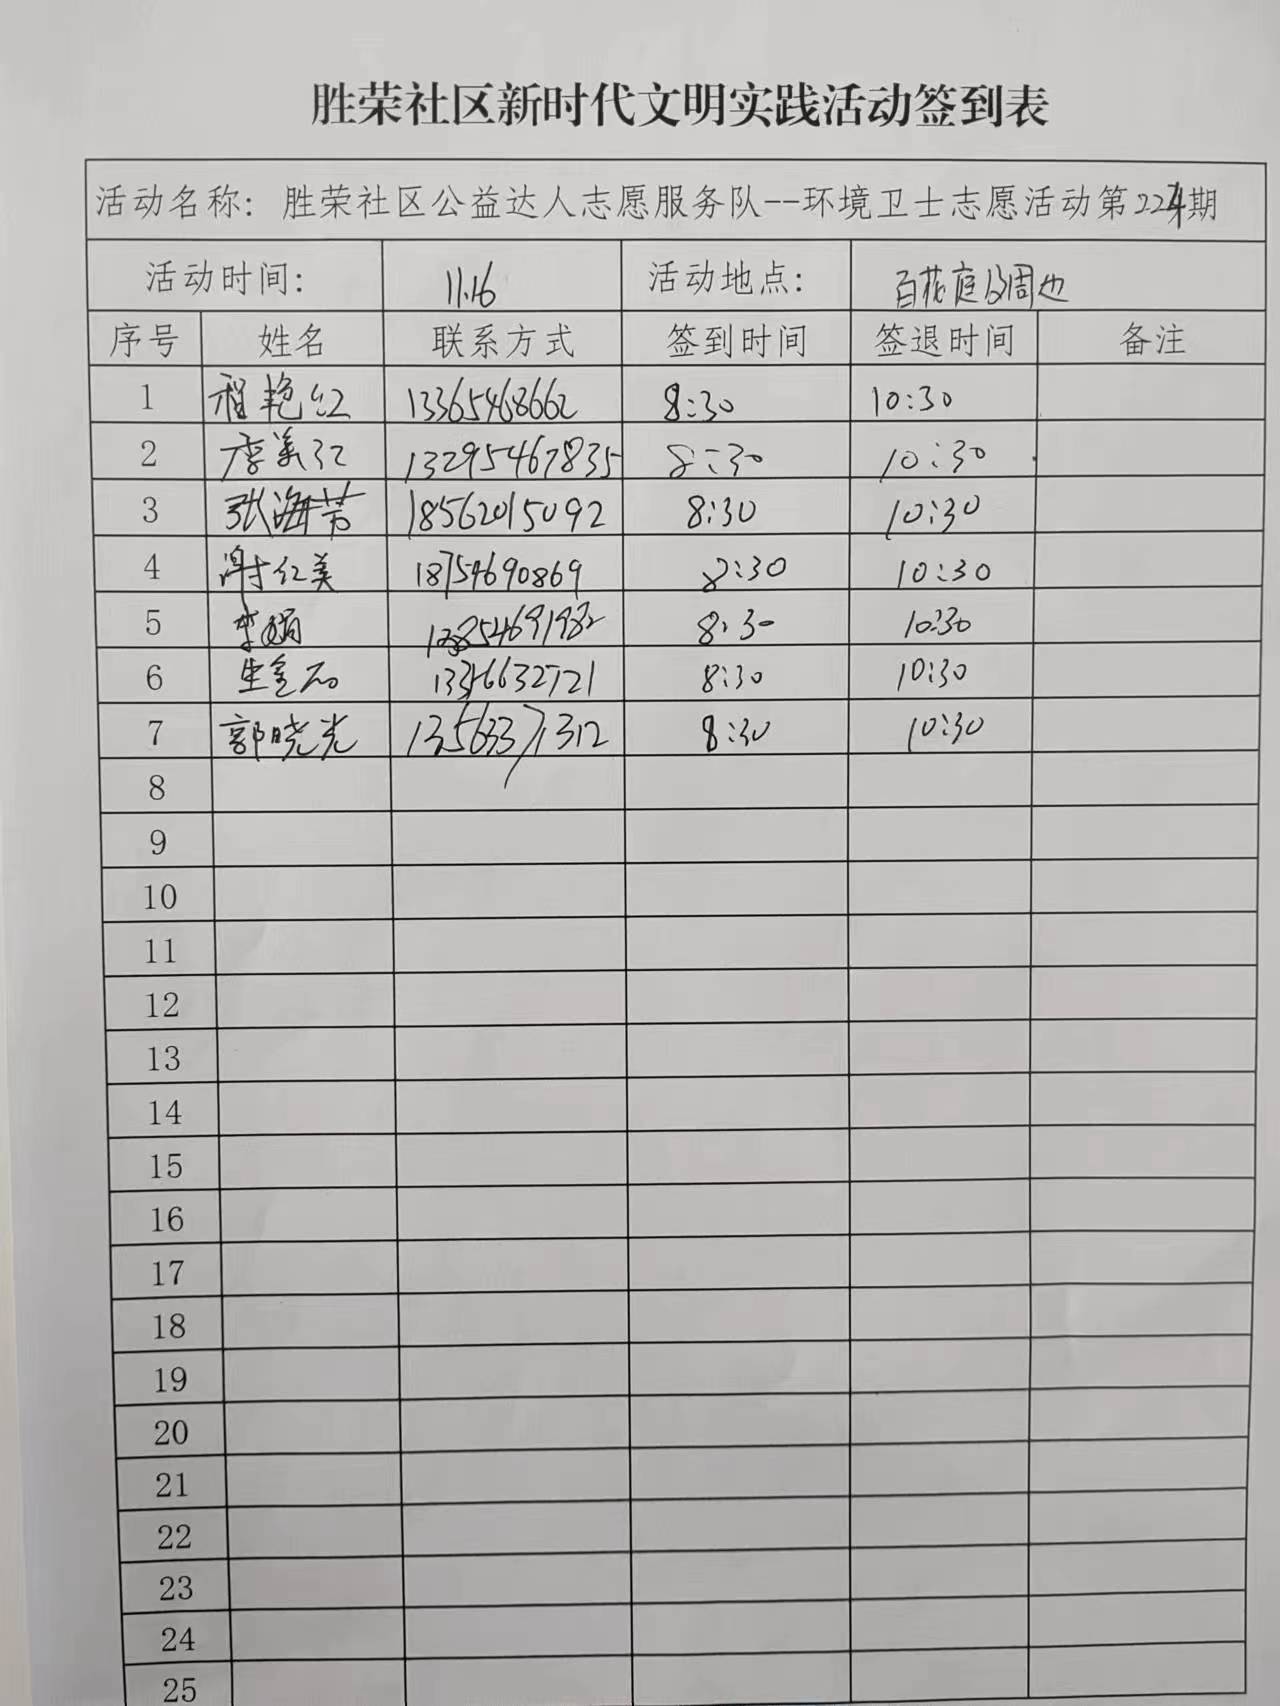 胜荣社区新时代文明实践活动签到表
活动名称：胜荣社区公益达人志愿服务队--环境卫士志愿活动第224期
活动时间： 11.16 活动地点： 百花庭及周边
序号 姓名 联系方式 签到时间 签退时间 备注
1 程艳红 13365468662 8:30 10:30
2 李美红 13295467835 8:30 10:30
3 张海芳 18562015092 8:30 10:30
4 谢红美 18754690869 8:30 10:30
5 李娟 8:30 10:30
6 8:30 10:30
7 郭晓光 13563371312 8:30 10:30
8
9
10
11
12
13
14
15
16
17
18
19
20
21
22
23
24
25